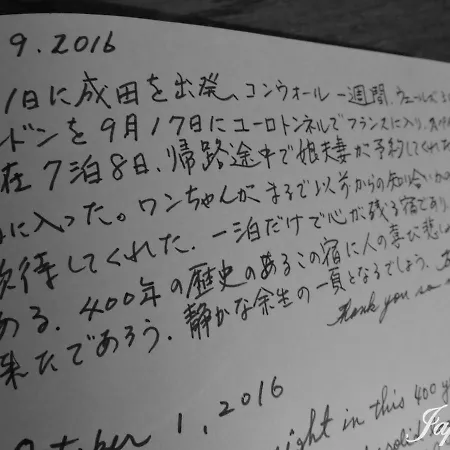 9. 2016
1日に成田を出発、コンウォール一週間、ウェールズ
ンドンを9月17日にユーロトンネルでフランスに入り、
在7泊8日、帰路途中で娘夫妻が予約してくれた
に入った。ワンちゃんがまるで以前からの知り合いかの
待してくれた。一泊だけで心が残る宿であり、
ある。400年の歴史のあるこの宿に人の喜び悲し
来たであろう。静かな余生の一頁となるでしょう。
Thank you so
October 1, 2016
night in this 400 y
solid
Ja